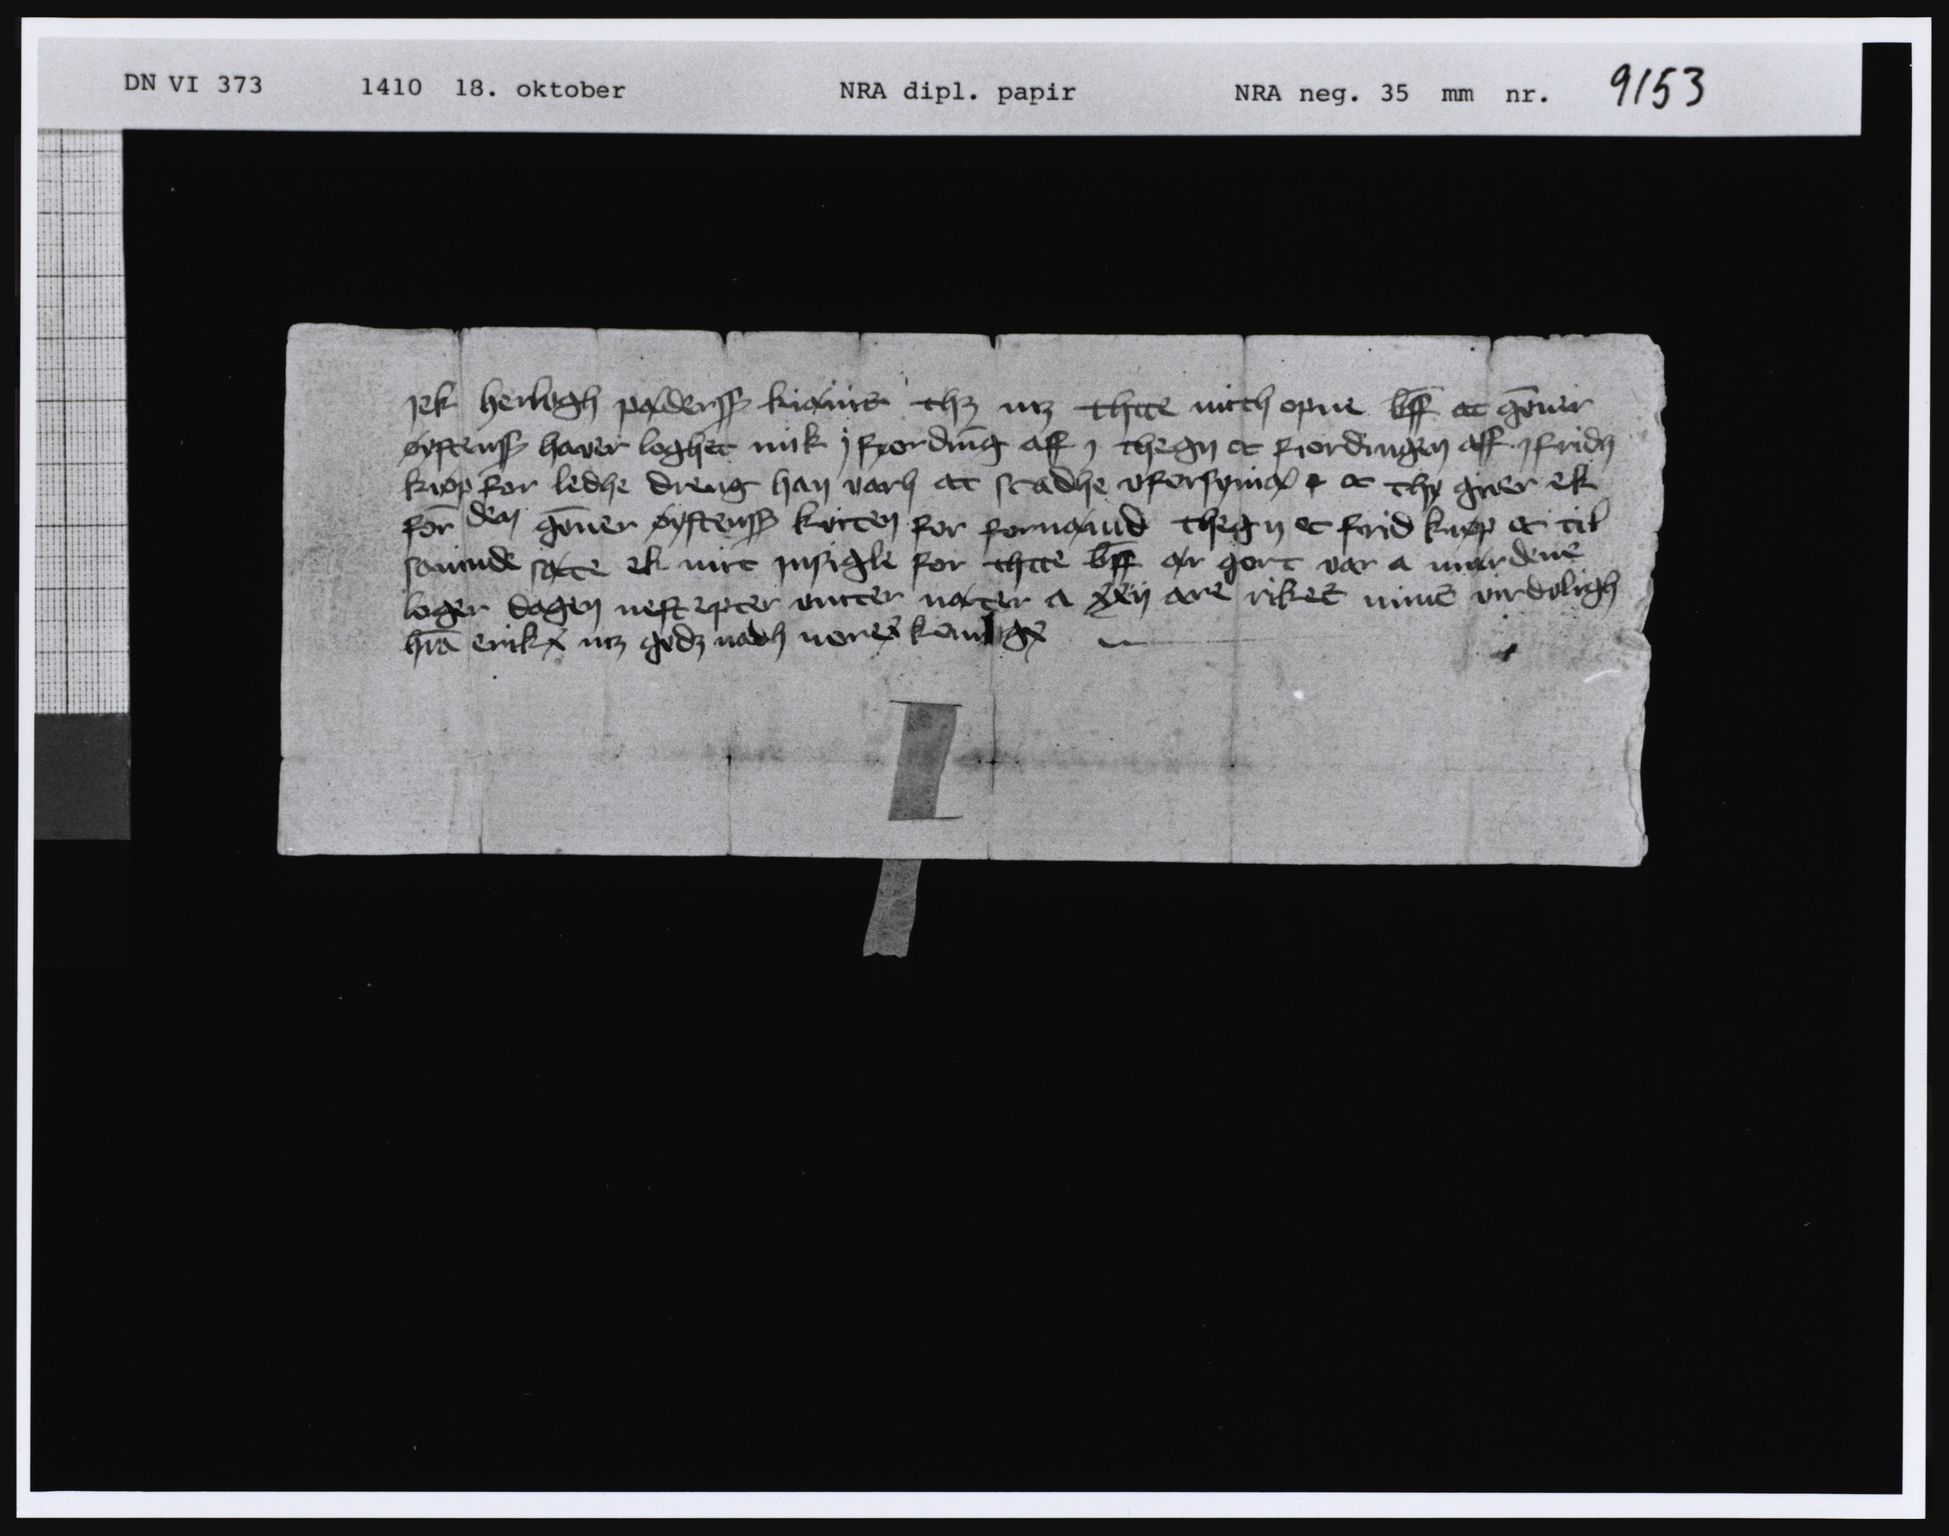 DN VI 373 1410 18. oktober NRA dipl. papir NRA neg. 35 mm nr. 9153
jek herlogh paldersß kiænis thz mz thette mith opne bff at gōner
øystensß haver loghet mik j fiording aff j thegn oc fiordingen aff j fridh
kiøp for ledhe dreng han varh at scadhe vforsyniæ oc thy giver ek
for den gōner øystensß kvitten for fornæmd thegn oc frid kiøp oc til
saninde sætte ek mit jnsigle for thette bff ær gort var a
loger dagen nest epter vinter næter a xxij are rikes mins virdvligh
hra eriks mz gvdz nadh norex konu gx